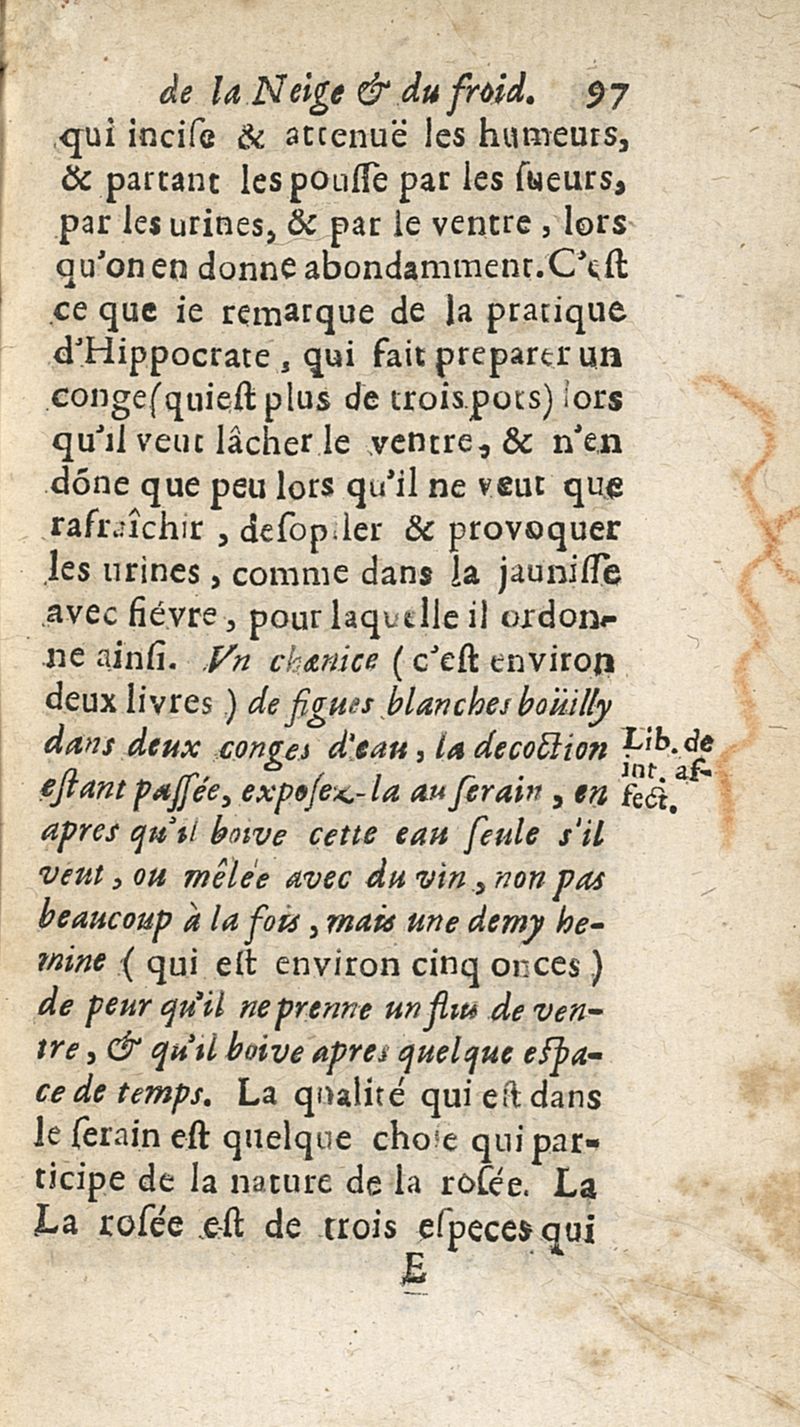 de la Neige & du froid. 97
qui inciſe & attenuë les humeurs,
& partant les pouſſe par les ſueurs,
par les urines, & par le ventre , lors
qu'on en donne abondamment. C'eſt
ce que ie remarque de la pratique
d'Hippocrate , qui fait preparer un
conge (qui eſt plus de trois pots) lors
qu'il veut lâcher le ventre, & n'en
dõne que peu lors qu'il ne veut que
rafraîchir , deſopiler & provoquer
les urines , comme dans la jauniſſe
avec fiévre , pour laquelle il ordon-
ne ainſi. Vn chænice ( c'eſt environ
deux livres ) de figues blanches boüilly
dans deux conges d'eau , la decoction
eſtant paſſée, expoſez-la au ſerain , en
Lib. de
int. af-
fect.
apres qu'il boive cette eau ſeule s'il
veut , ou mêlée avec du vin , non pas
beaucoup à la fois , mais une demy he-
mine ( qui eſt environ cinq onces )
de peur qu'il ne prenne un flus de ven-
tre , & qu'il boive apres quelque eſpa-
ce de temps. La qualité qui eſt dans
le ſerain eſt quelque choſe qui par-
ticipe de la nature de la roſée. La
La roſée eſt de trois eſpeces qui
E